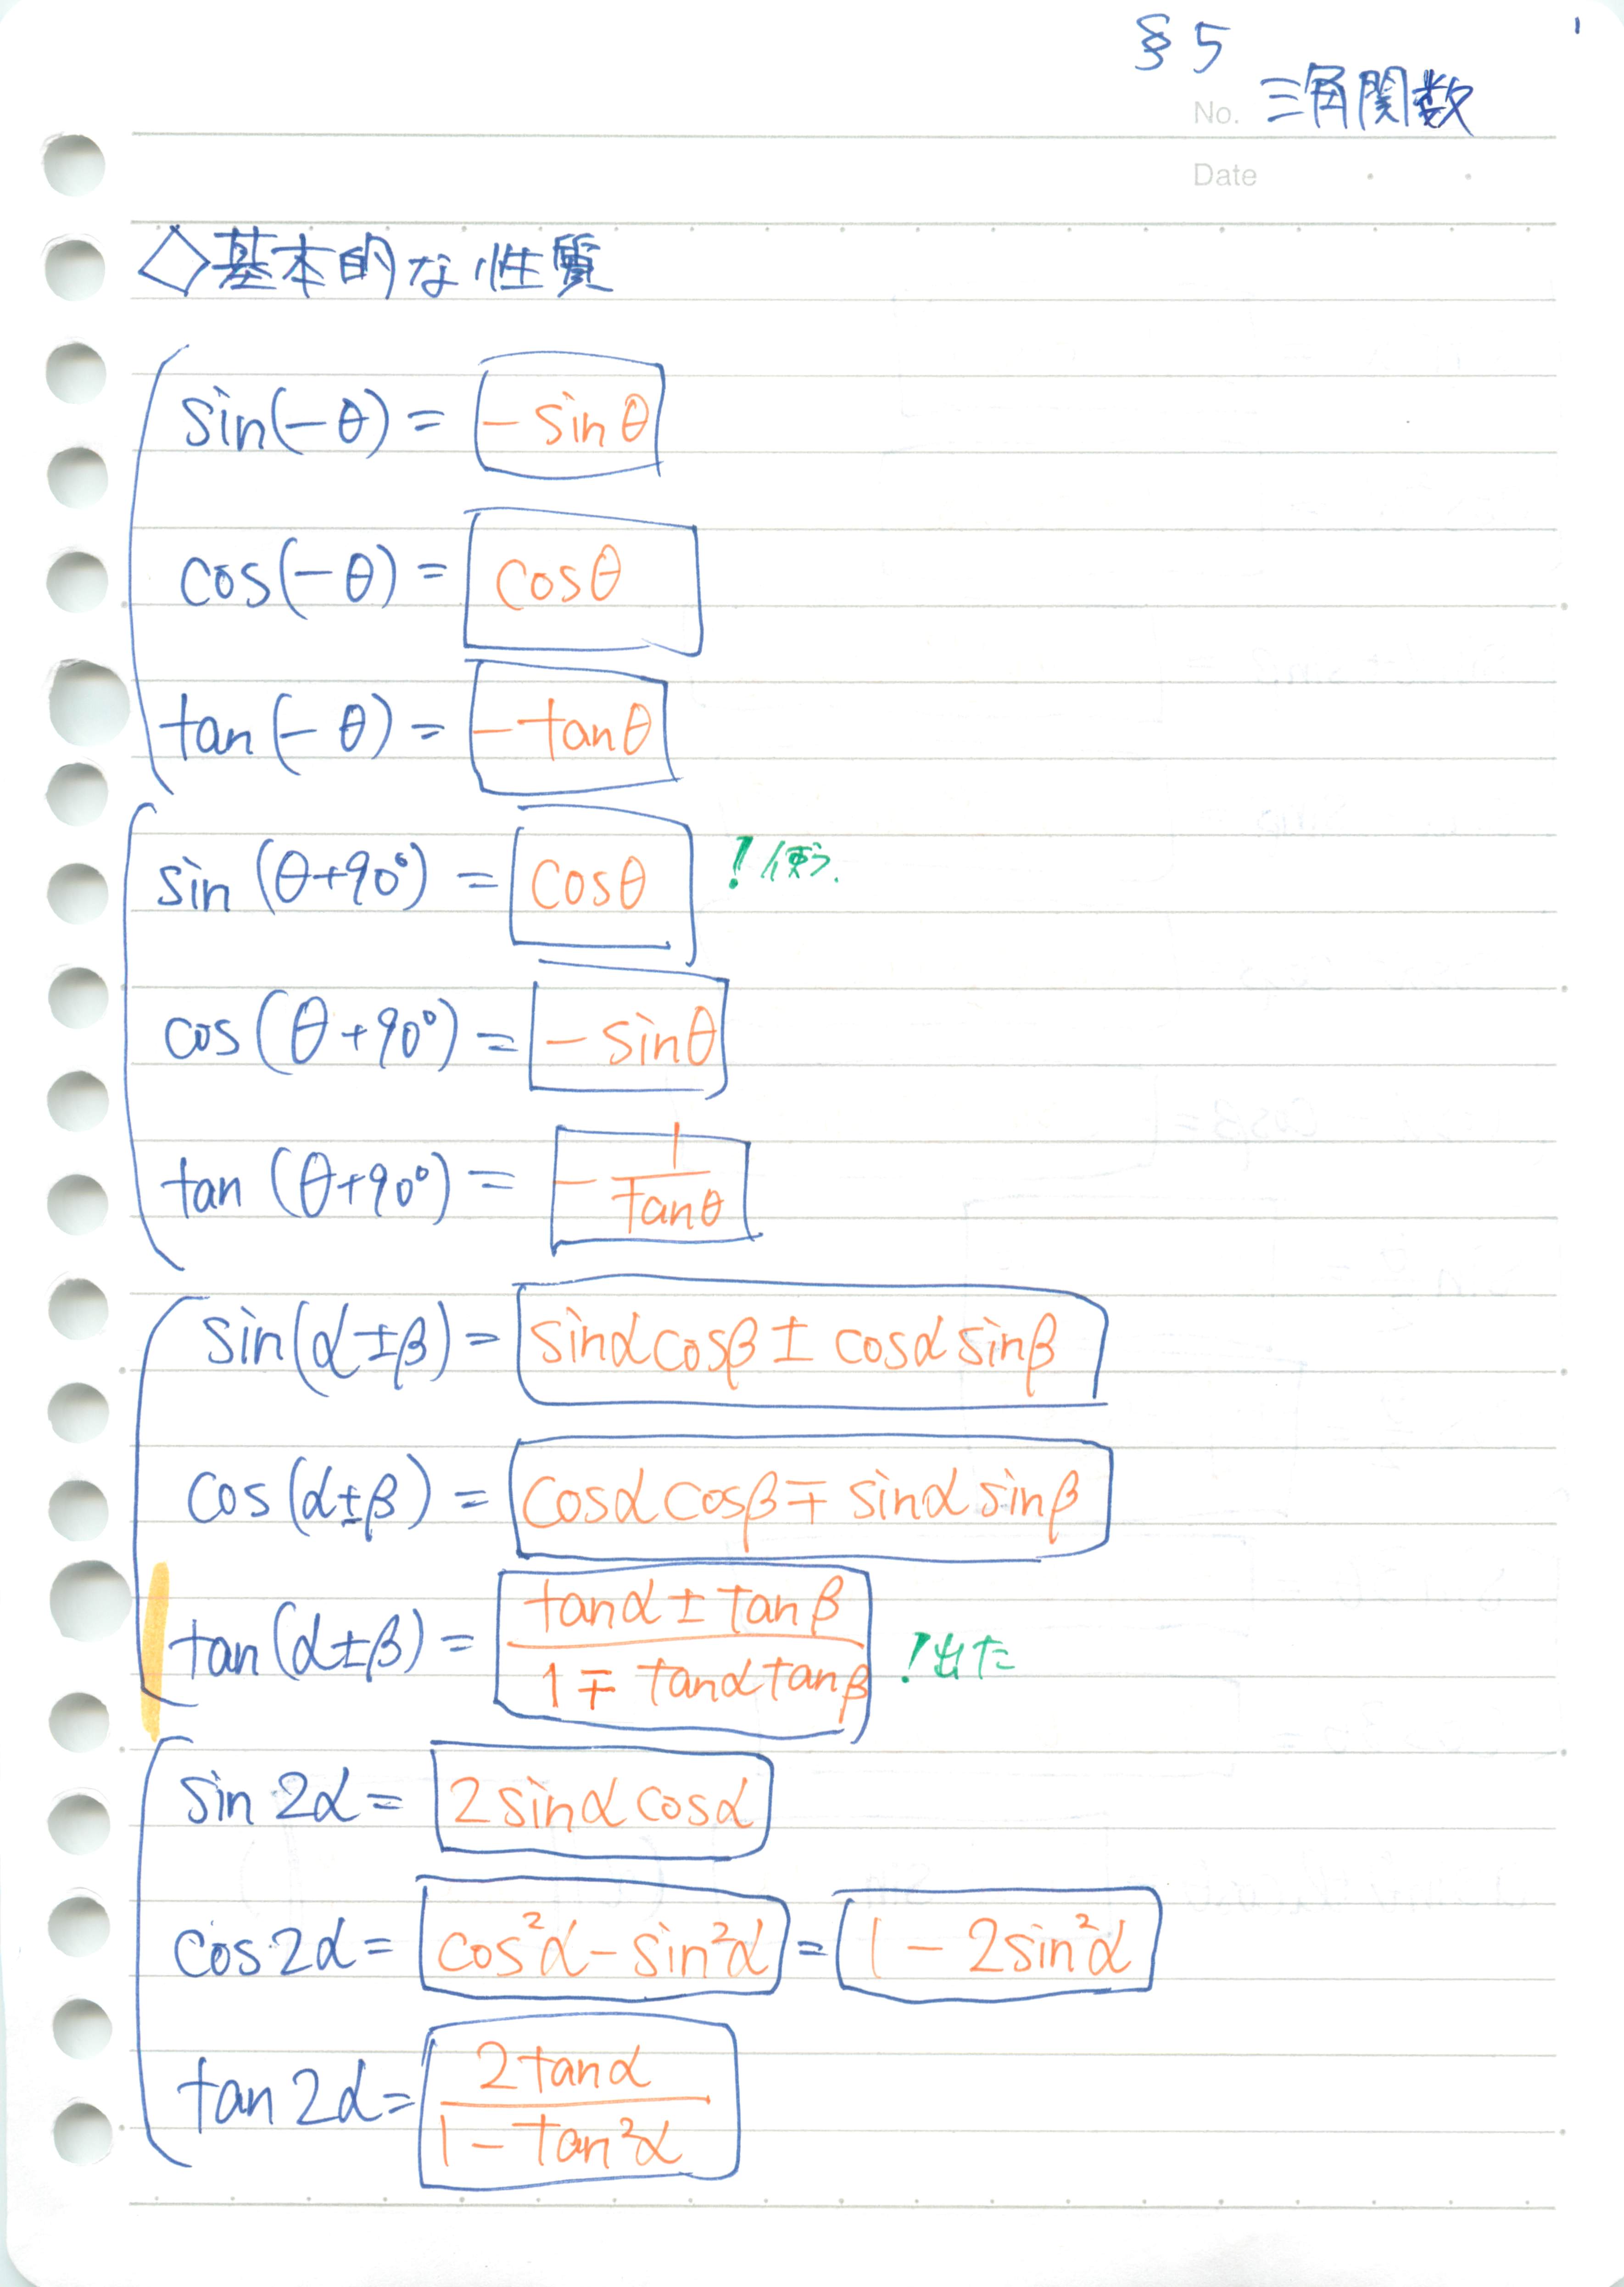 §5
1
No. 三角関数
Date
◇基本的な性質
sin(-θ) = -sinθ
cos(-θ) = cosθ
tan(-θ) = -tanθ
sin(θ+90°) = cosθ !使う.
cos(θ+90°) = -sinθ
tan(θ+90°) = -1/tanθ
sin(α±β) = sinαcosβ ± cosαsinβ
cos(α±β) = cosαcosβ∓sinαsinβ
tan(α±β) = (tanα±tanβ)/(1∓tanαtanβ) !出た
sin2α = 2sinαcosα
cos2α = cos²α-sin²α = 1-2sin²α
tan2α = 2tanα/(1-tan²α)